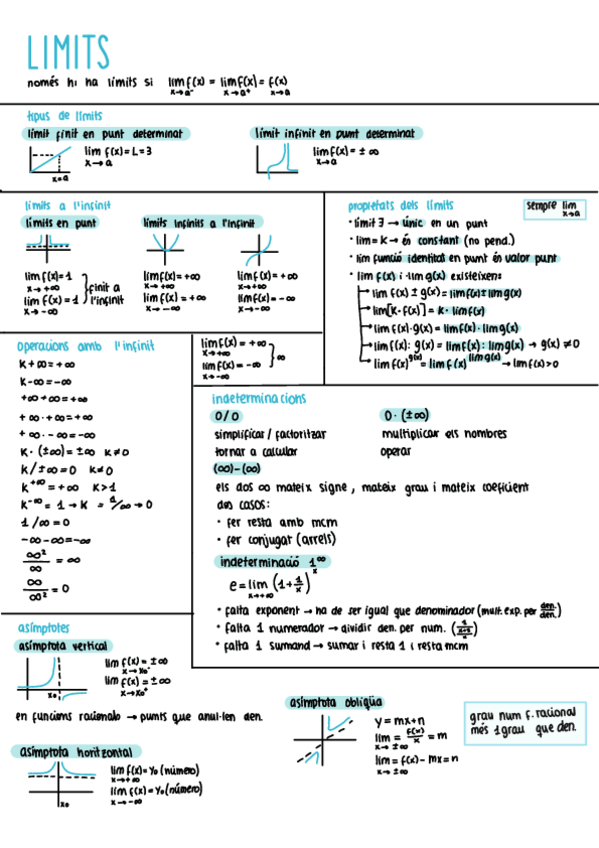 LIMITS
només hi ha límits si lim f(x) = lim f(x) = f(x)
x→a⁻ x→a⁺ x→a
tipus de límits
límit finit en punt determinat
lim f(x) = L = 3
x→a
x=a
límit infinit en punt determinat
lim f(x) = ± ∞
x→a
límits a l'infinit
límits en punt
lim f(x) = 1
x→+∞
lim f(x) = 1
x→-∞
finit a l'infinit
límits infinits a l'infinit
lim f(x) = +∞
x→+∞
lim f(x) = +∞
x→-∞
lim f(x) = +∞
x→+∞
lim f(x) = -∞
x→-∞
lim f(x) = +∞
x→+∞
lim f(x) = -∞
x→-∞
∞
propietats dels límits
sempre lim
x→a
· límit ∃ → únic en un punt
· lim = K → és constant (no pend.)
· lim funció identitat en punt és valor punt
· lim f(x) i · lim g(x) existeixen:
lim f(x) ± g(x) = lim f(x) ± lim g(x)
lim[K·f(x)] = K · lim f(x)
lim f(x)·g(x) = lim f(x) · lim g(x)
lim f(x) : g(x) = lim f(x) : lim g(x) → g(x) ≠ 0
lim f(x)^g(x) = lim f(x)^lim g(x) → lim f(x) > 0
operacions amb l'infinit
K + ∞ = + ∞
K - ∞ = - ∞
+∞ + ∞ = + ∞
+ ∞ · + ∞ = + ∞
+ ∞ · - ∞ = - ∞
K · (±∞) = ±∞ K ≠ 0
K / ± ∞ = 0 K ≠ 0
K^+∞ = + ∞ K > 1
1 / ∞ = 0
-∞ - ∞ = -∞
∞²/∞ = ∞
∞/∞² = 0
indeterminacions
0 / 0
simplificar / factoritzar
tornar a calcular
0 · (±∞)
multiplicar els nombres
operar
(∞) - (∞)
els dos ∞ mateix signe, mateix grau i mateix coeficient
dos casos:
· fer resta amb mcm
· fer conjugat (arrels)
indeterminació 1^∞
e = lim (1 + 1/x)^x
x→+∞
· falta exponent → ha de ser igual que denominador (mult. exp. per den./den.)
· falta 1 numerador → dividir den. per num.
· falta 1 sumand → sumar i resta 1 i resta mcm
asímptotes
asímptota vertical
x₀
lim f(x) = ± ∞
x→x₀⁻
lim f(x) = ± ∞
x→x₀⁺
en funcions racionals → punts que anul·len den.
asímptota horitzontal
x₀
lim f(x) = y₀ (número)
x→+∞
lim f(x) = y₀ (número)
x→-∞
asímptota obliqüa
y = mx+n
lim = f(x)/x = m
x→ ±∞
lim = f(x) - mx = n
x→ ±∞
grau num f. racional
més 1 grau que den.